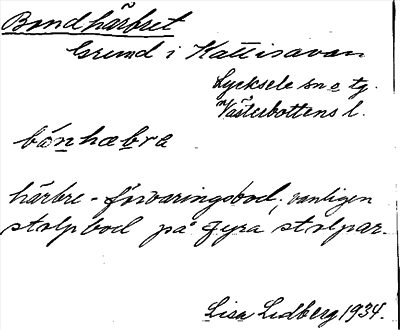 Bondhärbret
Grund i Kattisavan
Lycksele sn o tg.
Västerbottens l.
bónhæbra
härbre - förvaringsbod, vanligen
stolpbod på fyra stolpar.
Lisa Lidberg 1934.